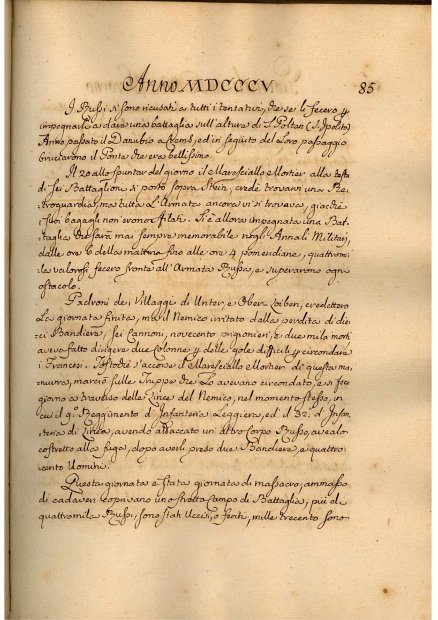 Anno MDCCCV. 85
I Russi si sono ricusati a tutti i tentativi, che se li fecero p
impegnarli a dare una battaglia sull'altura di S. Polten (S. Ipolito)
Anno passato il Danubio a Krems, ed in seguito del Loro passaggio
bruciarono il Ponte che era bellissimo.
Il 20 allo spuntar del giorno il Maresciallo Mortier alla testa
di sei Battaglioni si portò sopra Stein, credè trovarvi una Re-
troguardia, ma tutta l'Armata ancora vi si trovava, giacchè
i suoi bagagli non erono sfilati. Si è allora impegnata una Bat-
taglia che sarà mai sempre memorabile negli Annali Militari,
dalle ore 6 della mattina fino alle ore 4 pomeridiane, quattromi-
la valorosi fecero fronte all'Armata Russa, e superarono ogni
ostacolo.
Padroni dei Villaggi di Unter, e Ober Loiben, credettero
La giornata finita, ma il Nemico irritato dalla perdita di die-
ci Bandiere, sei Cannoni, novecento prigionieri, e due mila morti
aveva fatto dirigere due Colonne p delle gole difficili p circondare
i Francesi. Tostochè s'accorse il Maresciallo Mortier di questa ma-
nuvra, marciò sulle Truppe che Lo avevano circondato, e si fece
giorno a traverso delle Linee del Nemico, nel momento stesso, in
cui il 9.° Reggimento d'Infanteria Leggiera, ed il 32.° d'Infan-
teria di Linea, avendo attaccato un altro Corpo Russo, avealo
costretto alla fuga, dopo averli preso due Bandiere, e quattro
cento Uomini.
Questa giornata è stata giornata di massacro, ammasso
di cadaveri coprivano uno stretto Campo di Battaglia, più di
quattromila Russi, sono stati Uccisi, o feriti, mille trecento sono